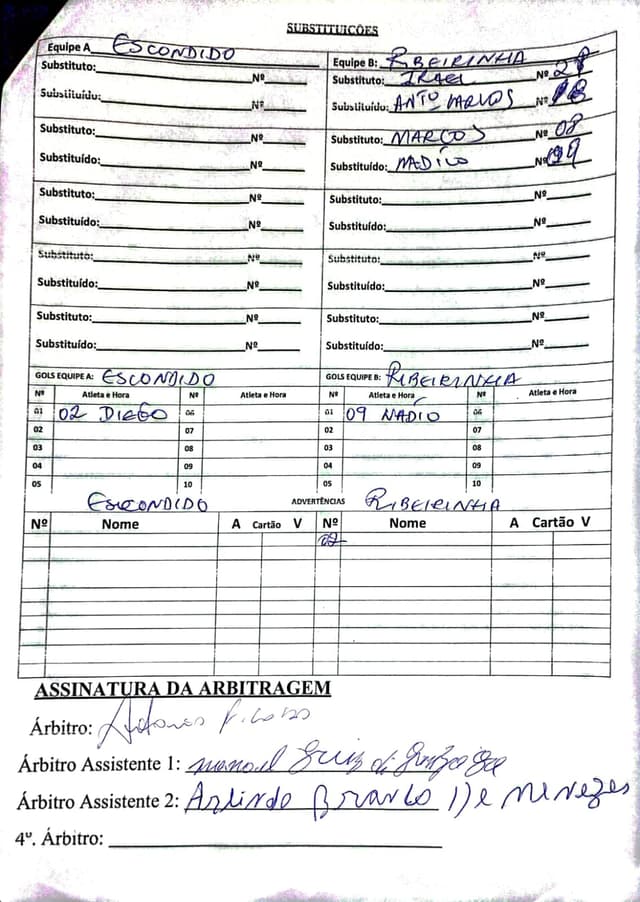 SUBSTITUIÇÕES
Equipe A ESCONDIDO Equipe B: RIBEIRINHA
Substituto: Nº Substituto: Nº
Substituído: Nº Substituído: ANTO CARLOS Nº 18
Substituto: Nº Substituto: MARCOS Nº 08
Substituído: Nº Substituído: NADICO Nº
Substituto: Nº Substituto: Nº
Substituído: Nº Substituído: Nº
Substituto: Nº Substituto: Nº
Substituído: Nº Substituído: Nº
Substituto: Nº Substituto: Nº
Substituído: Nº Substituído: Nº
GOLS EQUIPE A: ESCONDIDO GOLS EQUIPE B: RIBEIRINHA
Nº Atleta e Hora Nº Atleta e Hora Nº Atleta e Hora Nº Atleta e Hora
01 02 DIEGO 06 01 09 NADIO 06
02 07 02 07
03 08 03 08
04 09 04 09
05 10 05 10
ESCONDIDO ADVERTÊNCIAS RIBEIRINHA
Nº Nome A Cartão V Nº Nome A Cartão V
ASSINATURA DA ARBITRAGEM
Árbitro:
Árbitro Assistente 1: Manoel
Árbitro Assistente 2: Arlindo De Menezes
4º. Árbitro: